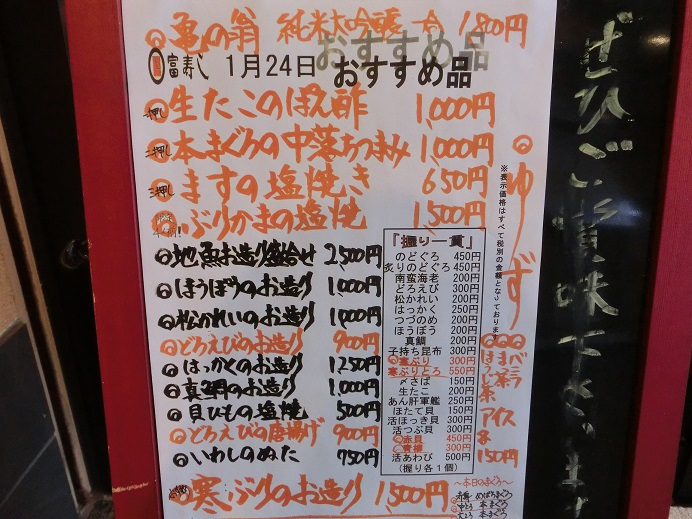 亀の翁 純米大吟醸 一合 1,800円
富寿し 1月24日 おすすめ品
一押し 生たこのぽん酢 1,000円
二押し 本まぐろの中落ちつまみ 1,000円
三押し ますの塩焼き 650円
ぶりかまの塩焼 1,500円
地魚お造り盛合せ 2,500円
ほうぼうのお造り 1,000円
松かれいのお造り 1,000円
どろえびのお造り 900円
はっかくのお造り 1,250円
真鯛のお造り 1,000円
貝ひもの塩焼 500円
どろえびの唐揚げ 900円
いわしのぬた 750円
寒ぶりのお造り 1,500円
「握り一貫」
のどぐろ 450円
炙りのどぐろ 450円
南蛮海老 200円
どろえび 300円
松かれい 200円
はっかく 250円
つづのめ 200円
ほうぼう 200円
真鯛 300円
子持ち昆布 300円
寒ぶり 300円
寒ぶりとろ 550円
〆さば 150円
生たこ 200円
あん肝軍艦 250円
ほたて貝 150円
活ほっき貝 300円
活つぶ貝 300円
赤貝 450円
青柳 300円
活あわび 500円
(握り各1個)
※表示価格はすべて税別の金額となっております
ゆず
バニラ
まっ茶
ほうじ茶
アイス
各150円
～本日のまぐろ～
赤身 めばちまぐろ
中とろ 本まぐろ
大とろ 本まぐろ
ぜひご賞味下さいませ